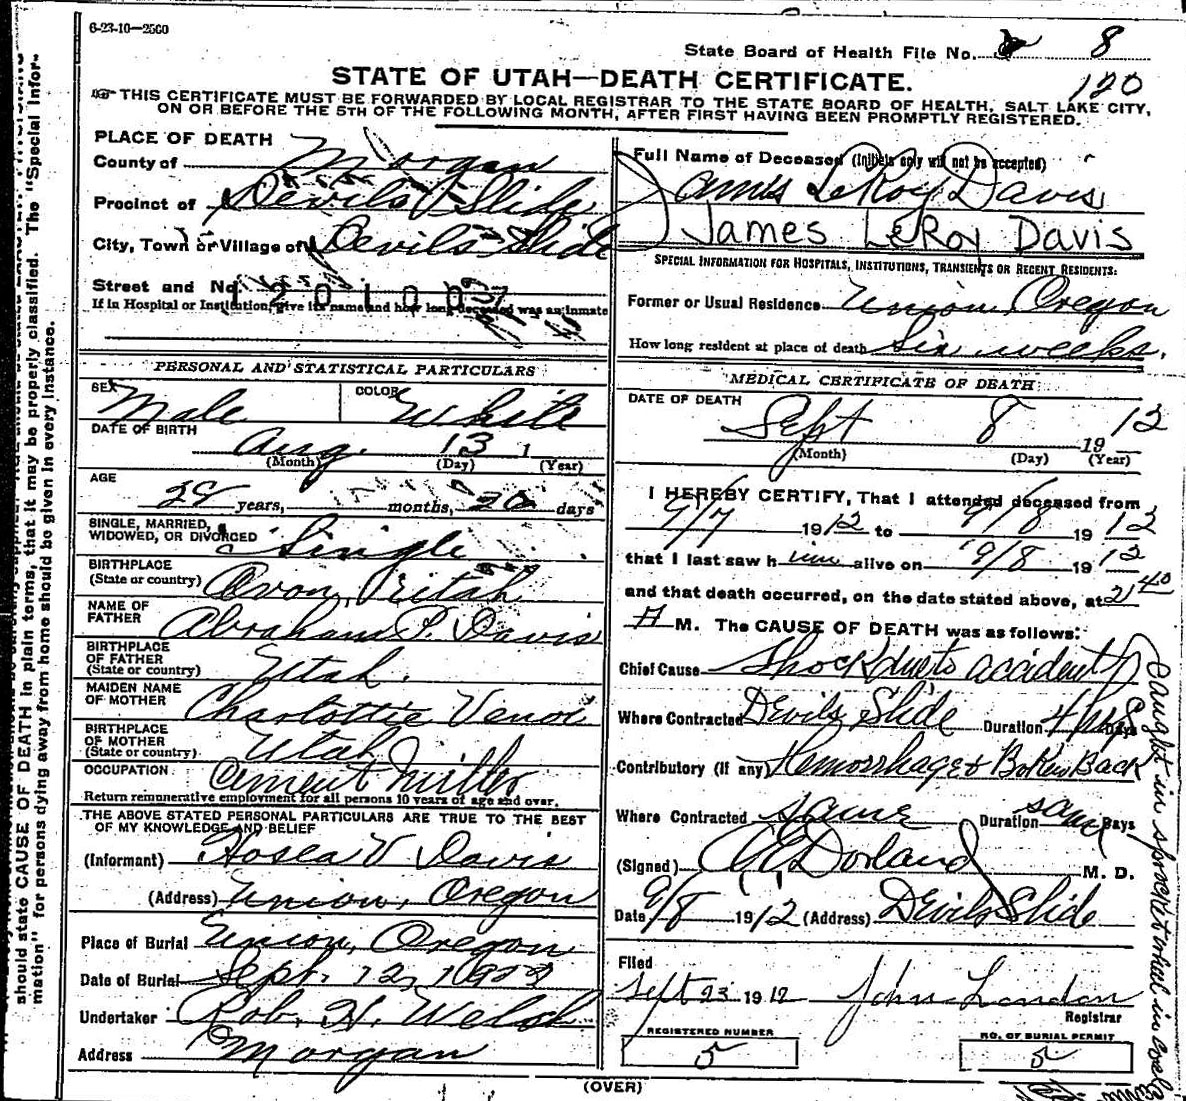 6-23-10—2500
State Board of Health File No. 8
120
STATE OF UTAH—DEATH CERTIFICATE.
THIS CERTIFICATE MUST BE FORWARDED BY LOCAL REGISTRAR TO THE STATE BOARD OF HEALTH, SALT LAKE CITY,
ON OR BEFORE THE 5TH OF THE FOLLOWING MONTH, AFTER FIRST HAVING BEEN PROMPTLY REGISTERED.
PLACE OF DEATH
County of Morgan
Precinct of Devils Slide
City, Town or Village of Devils Slide
Street and No.
If in Hospital or Institution, give its name and how long deceased was an inmate
PERSONAL AND STATISTICAL PARTICULARS
SEX Male COLOR White
DATE OF BIRTH Aug. 13 1
(Month) (Day) (Year)
AGE
years, months, days
SINGLE, MARRIED,
WIDOWED, OR DIVORCED Single
BIRTHPLACE
(State or country) Avon, Utah
NAME OF
FATHER Abraham P. Davis
BIRTHPLACE
OF FATHER
(State or country) Utah.
MAIDEN NAME
OF MOTHER Charlottie
BIRTHPLACE
OF MOTHER
(State or country) Utah
OCCUPATION Cement Miller
Return remunerative employment for all persons 10 years of age and over.
THE ABOVE STATED PERSONAL PARTICULARS ARE TRUE TO THE BEST
OF MY KNOWLEDGE AND BELIEF
(Informant) Hosea V Davis
(Address) Union, Oregon
Place of Burial Union, Oregon
Date of Burial Sept. 12,
Undertaker Rob. H. Welch
Address Morgan
Full Name of Deceased (Initials only will not be accepted)
James LeRoy Davis
James LeRoy Davis
SPECIAL INFORMATION FOR HOSPITALS, INSTITUTIONS, TRANSIENTS OR RECENT RESIDENTS:
Former or Usual Residence Union, Oregon
How long resident at place of death Six weeks.
MEDICAL CERTIFICATE OF DEATH
DATE OF DEATH
Sept 8 1912
(Month) (Day) (Year)
I HEREBY CERTIFY, That I attended deceased from
9/7 1912 to 9/8 1912
that I last saw him alive on 9/8 1912
and that death occurred, on the date stated above, at 2 40
A M. The CAUSE OF DEATH was as follows:
Chief Cause Shock due to accident
Where Contracted Devils Slide Duration Days
Contributory (if any) Hemorrhage & Broken Back
Where Contracted same Duration same Days
(Signed) Dorland M. D.
Date 9/8 1912 (Address) Devils Slide
Filed
Sept 23 1912 John London
Registrar
REGISTERED NUMBER
5
NO. OF BURIAL PERMIT
5
(OVER)
should state CAUSE OF DEATH in plain terms, that it may be properly classified. The "Special Infor-
mation" for persons dying away from home should be given in every instance.
Caught in sprocket wheel in coal